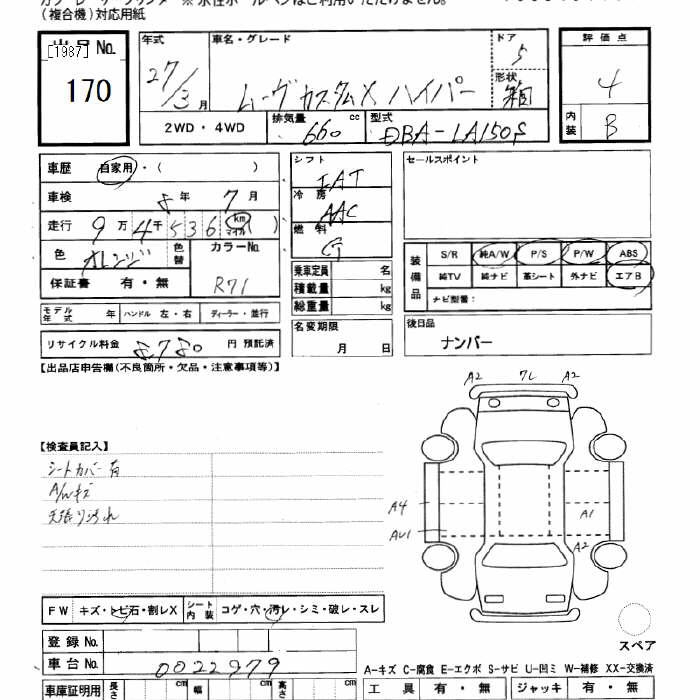 (複合機)対応用紙
出品No.
[1987]
170
年式
27/3月
車名・グレード
ムーヴカスタムX ハイパー
ドア
5
形状
箱
評価点
4
内装
B
2WD・4WD
排気量
660 cc
型式
DBA-LA150S
車歴 自家用・( )
車検 年 7月
走行 9万4千536 km マイル ( )
色 オレンジ 色替
カラーNo.
R71
保証書 有・無
モデル年式 年 ハンドル 左・右 ディーラー・並行
リサイクル料金 8780 円 預託済
シフト
IAT
冷房
AAC
燃料
G
乗車定員 名
積載量 kg
総重量 kg
名変期限
月 日
セールスポイント
装備品
S/R 純A/W P/S P/W ABS
純TV 純ナビ 革シート 外ナビ エアB
ナビ型番:
後日品
ナンバー
【出品店申告欄(不良箇所・欠品・注意事項等)】
A2 フレ A2
【検査員記入】
シートカバー有
A/Wキズ
天張り汚れ
A4
AU1
A1
A2
FW キズ・トビ石・割レX シート内装 コゲ・穴・汚レ・シミ・破レ・スレ
スペア
登録No.
車台No. 0022979
A-キズ C-腐食 E-エクボ S-サビ U-凹ミ W-補修 XX-交換済
車庫証明用 長さ cm 幅 cm 高さ cm
工具 有・無 ジャッキ 有・無